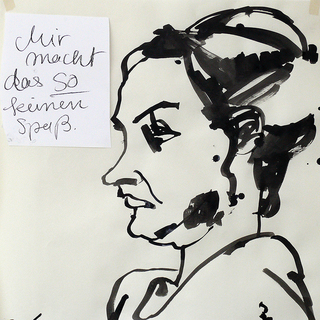 Mir
macht
das SO
keinen
Spaß.